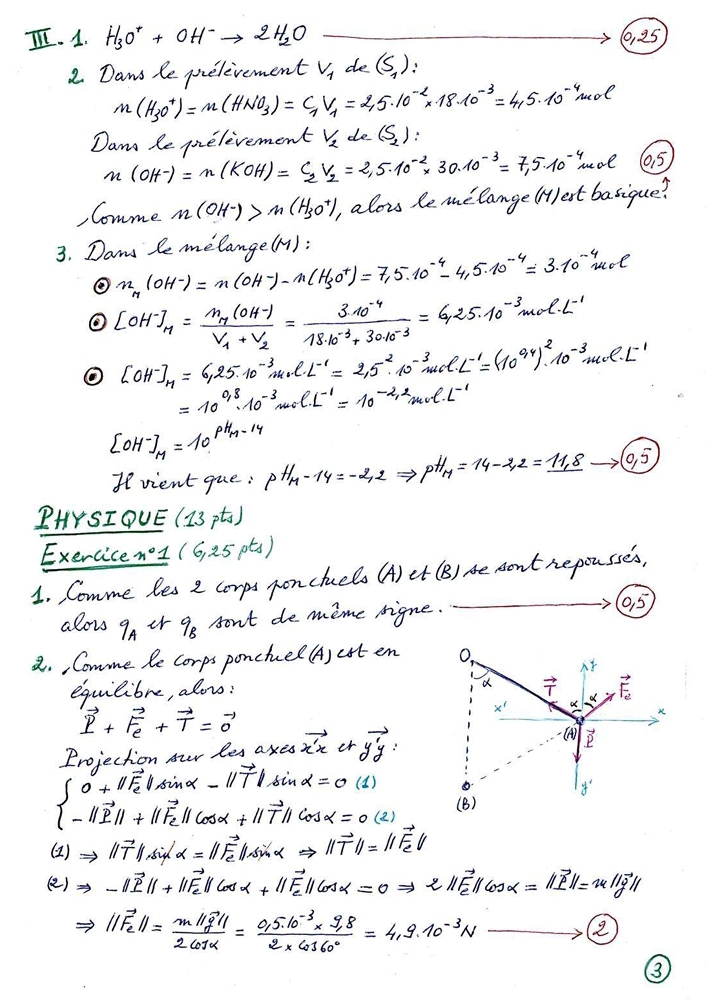 III. 1. H₃O⁺ + OH⁻ → 2H₂O → 0,25
2. Dans le prélèvement V₁ de (S₁) :
n(H₃O⁺) = n(HNO₃) = C₁V₁ = 2,5.10⁻² × 18.10⁻³ = 4,5.10⁻⁴ mol
Dans le prélèvement V₂ de (S₂) :
n(OH⁻) = n(KOH) = C₂V₂ = 2,5.10⁻² × 30.10⁻³ = 7,5.10⁻⁴ mol 0,5
Comme n(OH⁻) > n(H₃O⁺), alors le mélange (M) est basique. ↑
3. Dans le mélange (M) :
n_M(OH⁻) = n(OH⁻) - n(H₃O⁺) = 7,5.10⁻⁴ - 4,5.10⁻⁴ = 3.10⁻⁴ mol
[OH⁻]_M = n_M(OH⁻) / (V₁ + V₂) = 3.10⁻⁴ / (18.10⁻³ + 30.10⁻³) = 6,25.10⁻³ mol.L⁻¹
[OH⁻]_M = 6,25.10⁻³ mol.L⁻¹ = 2,5².10⁻³ mol.L⁻¹ = (10^0,4)².10⁻³ mol.L⁻¹
= 10^0,8.10⁻³ mol.L⁻¹ = 10^-2,2 mol.L⁻¹
[OH⁻]_M = 10^(pH_M - 14)
Il vient que : pH_M - 14 = -2,2 ⇒ pH_M = 14 - 2,2 = 11,8 → 0,5
PHYSIQUE (13 pts)
Exercice n°1 (6,25 pts)
1. Comme les 2 corps ponctuels (A) et (B) se sont repoussés,
alors q_A et q_B sont de même signe. → 0,5
2. Comme le corps ponctuel (A) est en
équilibre, alors :
P⃗ + F⃗e + T⃗ = o⃗
Projection sur les axes x'x⃗ et y'y⃗ :
0 + ||F⃗e|| sinα - ||T⃗|| sinα = 0 (1)
-||P⃗|| + ||F⃗e|| cosα + ||T⃗|| cosα = 0 (2)
(1) ⇒ ||T⃗|| sinα = ||F⃗e|| sinα ⇒ ||T⃗|| = ||F⃗e||
(2) ⇒ -||P⃗|| + ||F⃗e|| cosα + ||F⃗e|| cosα = 0 ⇒ 2||F⃗e|| cosα = ||P⃗|| = m||g⃗||
⇒ ||F⃗e|| = m||g⃗|| / 2cosα = 0,5.10⁻³ × 9,8 / 2 × cos60° = 4,9.10⁻³ N → 2
O
α
T⃗
y
α α
F⃗e
x'
x
(A)
P⃗
y'
(B)
3